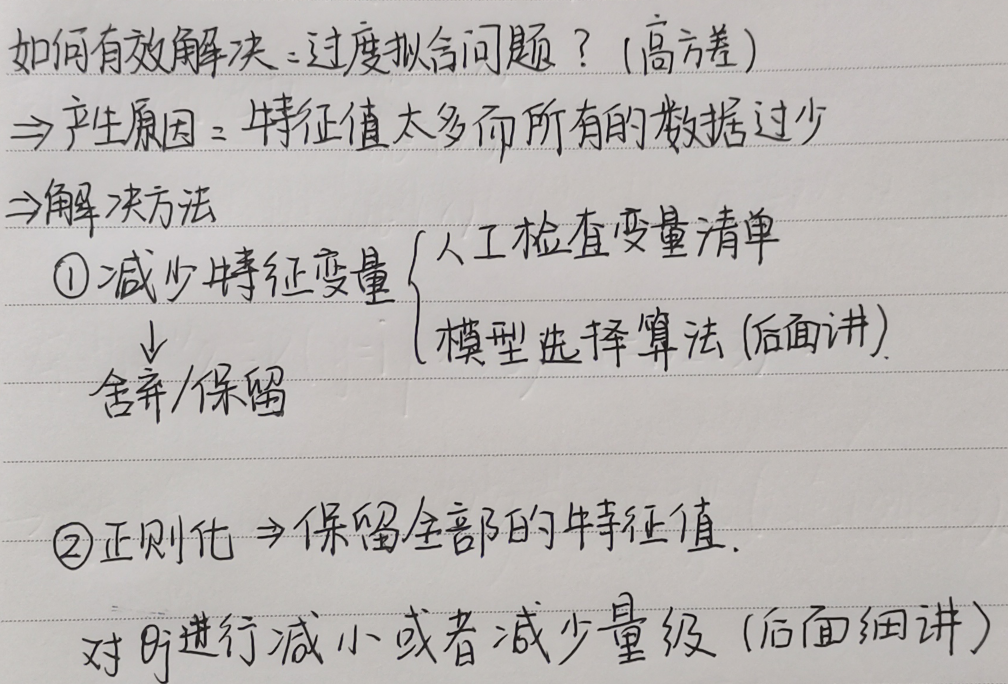 如何有效解决:过度拟合问题?(高方差)
⇒产生原因:特征值太多而所有的数据过少
⇒解决方法
①减少特征变量{人工检查变量清单
模型选择算法(后面讲).
↓
舍弃/保留
②正则化⇒保留全部的特征值.
对θj进行减小或者减少量级(后面细讲)